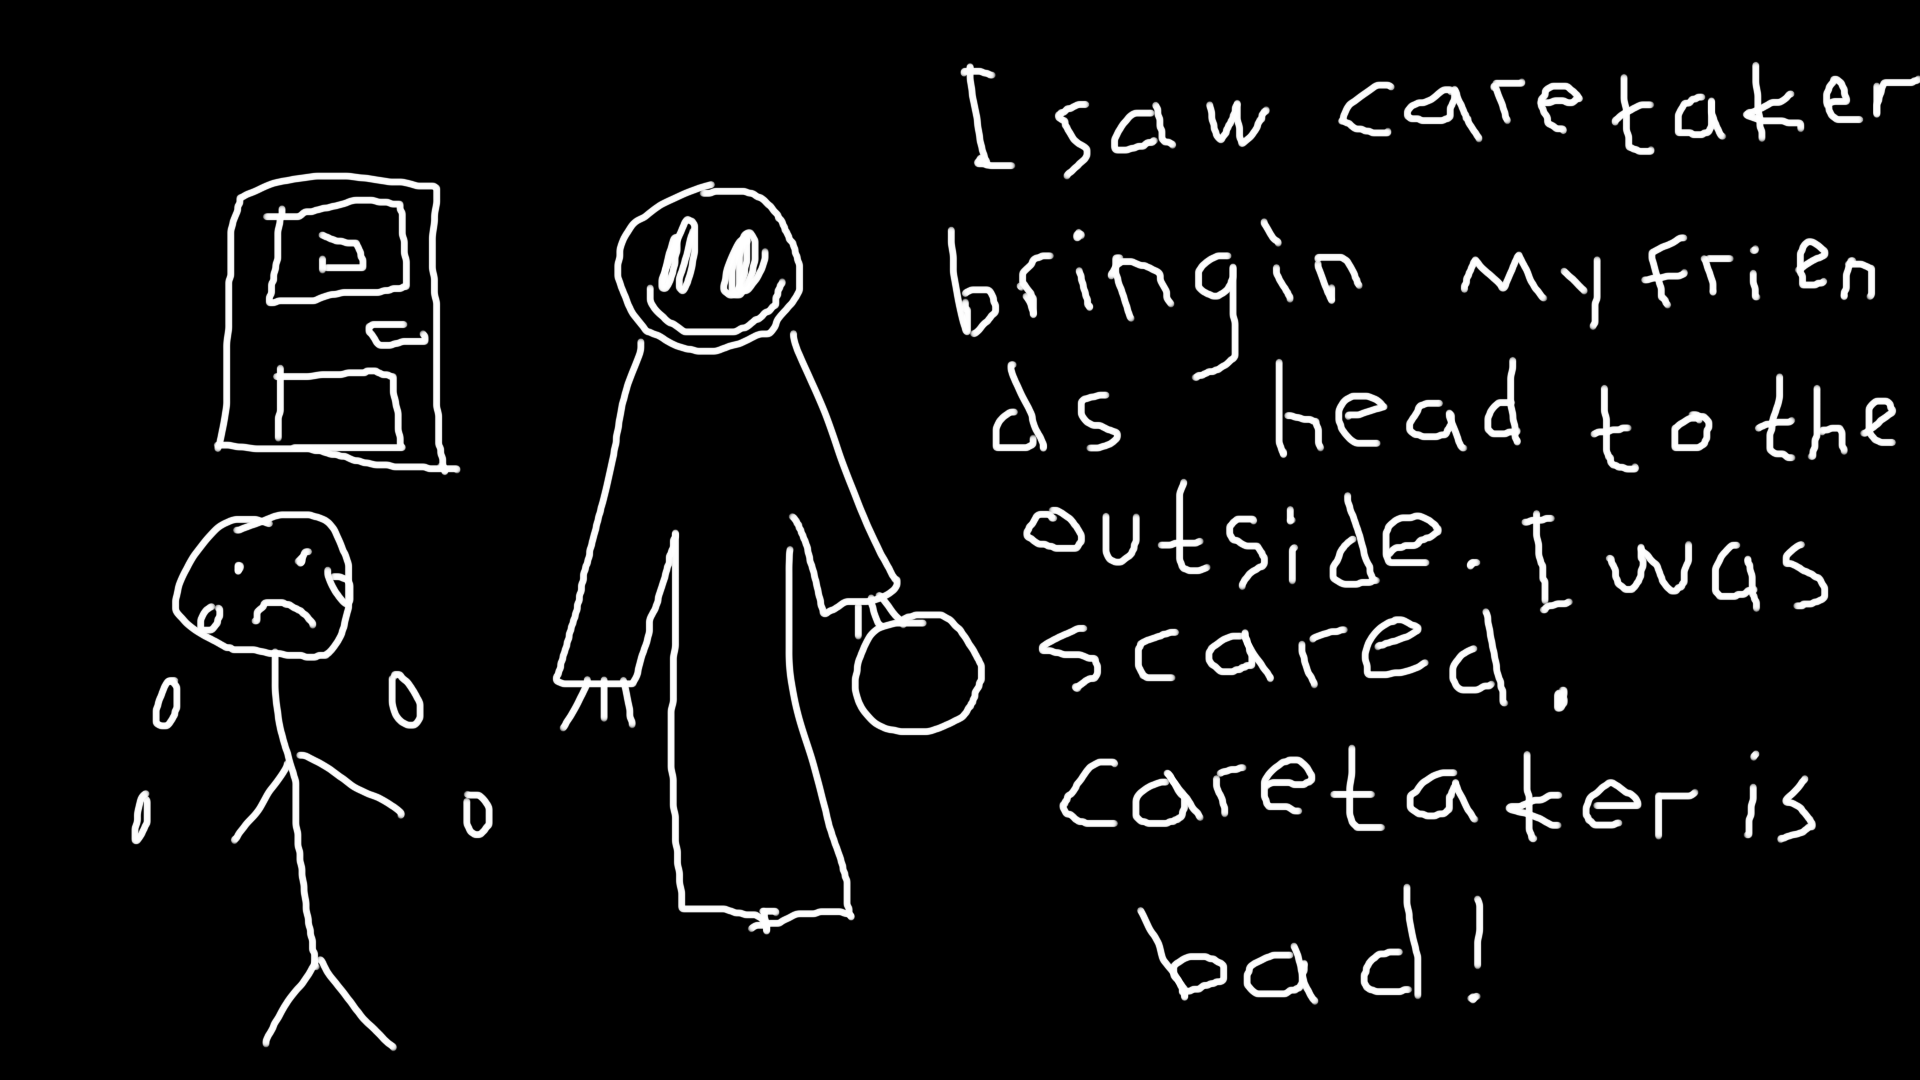 I saw caretaker
bringin my frien
ds head to the
outside. I was
scared.
caretaker is
bad!